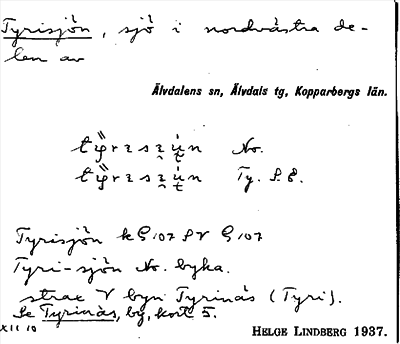 Tyrisjön, sjö i nordvästra de-
len av
Älvdalens sn, Älvdals tg, Kopparbergs län.
No.
Ty. S. E.
Tyrisjön
Tyri-sjön No. byka.
strax V byn Tyrinäs (Tyri).
Se Tyrinäs, by, kort 5.
XII 10
HELGE LINDBERG 1937.